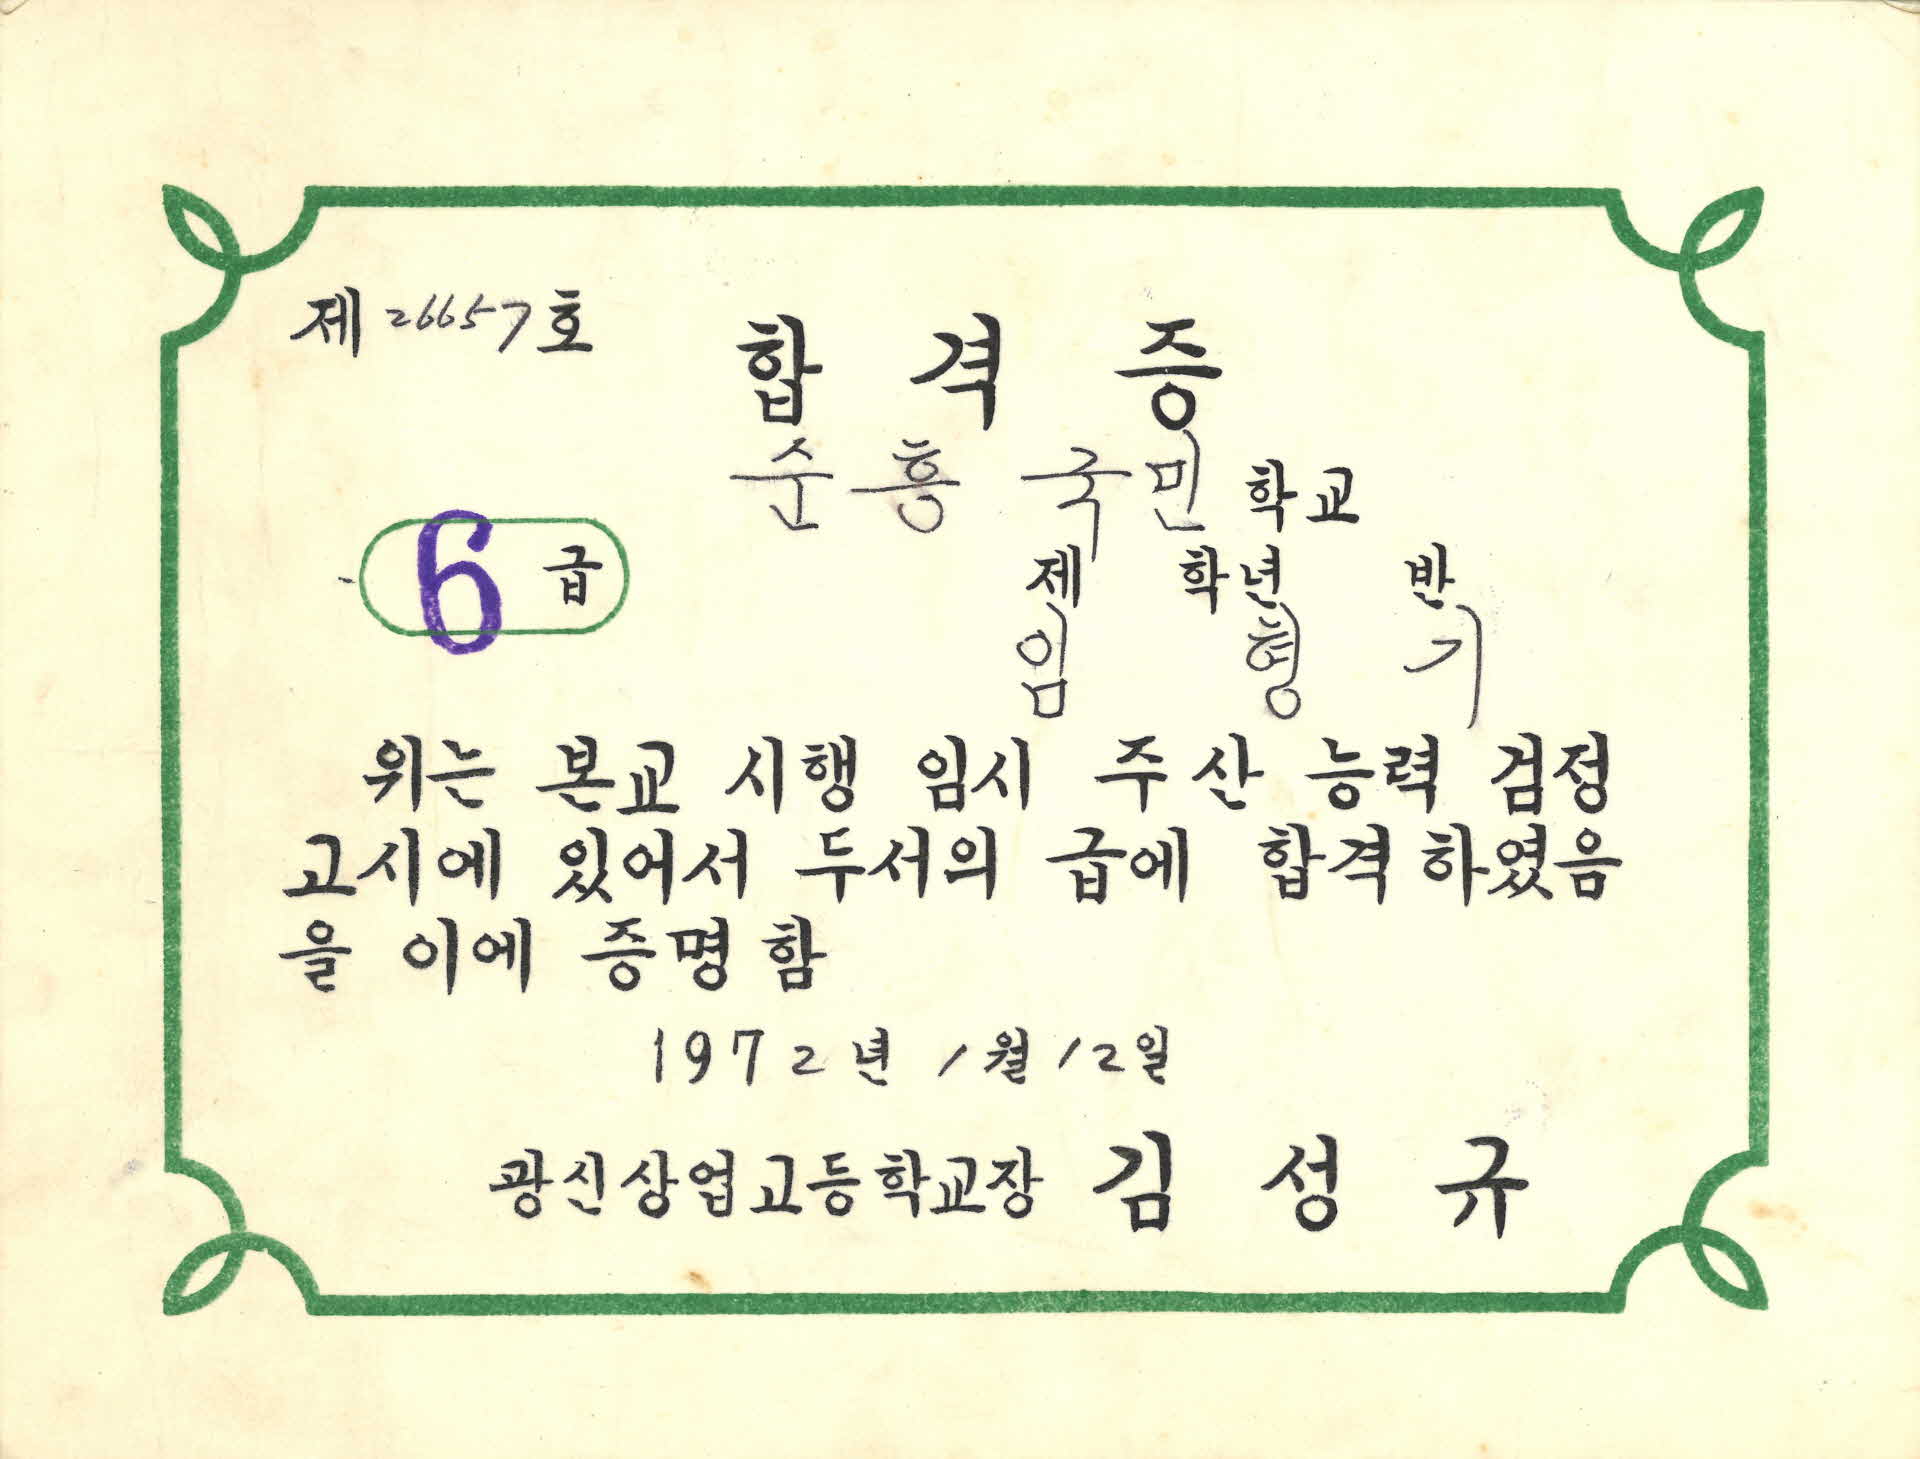 제 26657 호
합 격 증
순흥 국민 학교
6 급
제 학년 반
임 형 기
위는 본교 시행 임시 주산 능력 검정
고시에 있어서 두서의 급에 합격 하였음
을 이에 증명 함
1972년 1월 12일
광신상업고등학교장 김 성 규